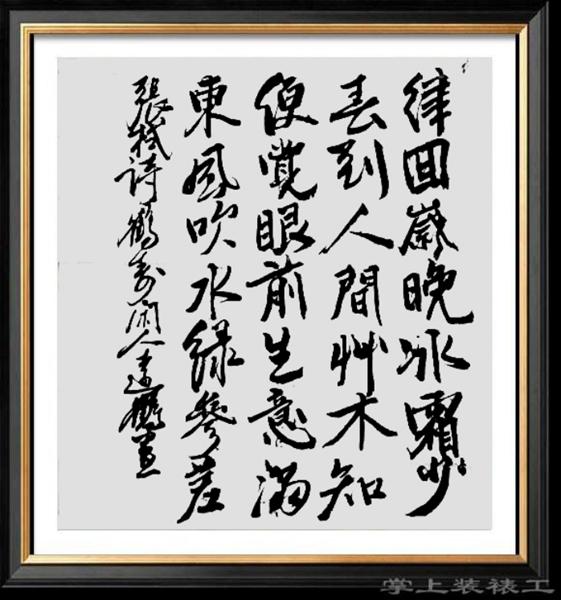 律回歲晚冰霜少
春到人間艸木知
便覺眼前生意滿
東風吹水綠參差
張栻詩鶴壽閑人書
掌上装裱工